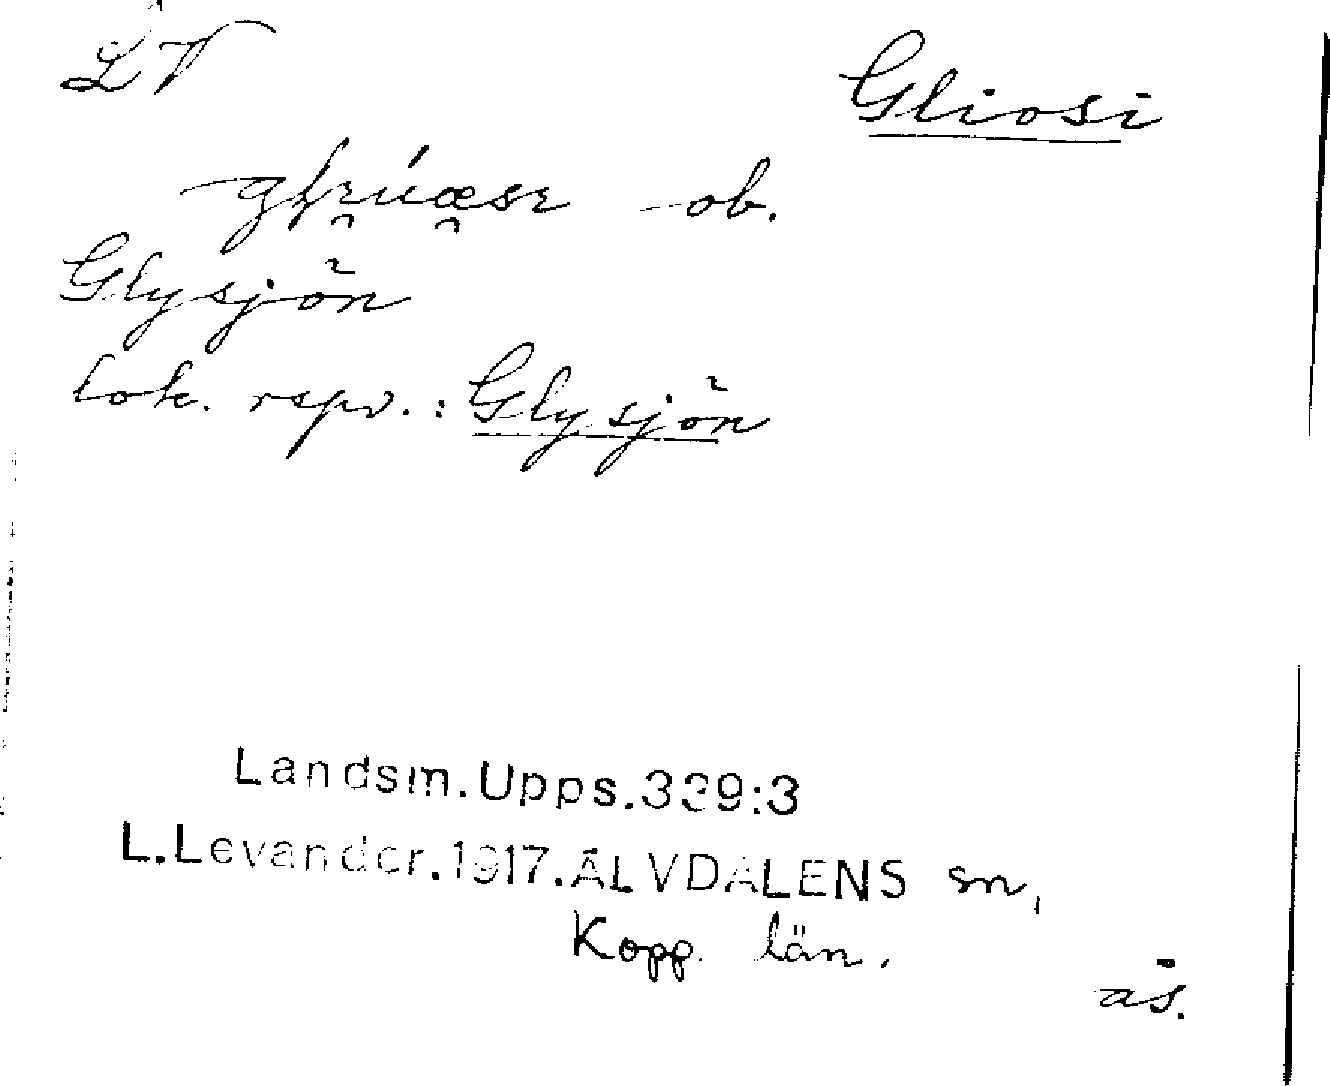 LV
Gliosi
ob.
Glysjön
lok. repv.: Glysjön
Landsm.Upps.339:3
L.Levander.1917.ÄLVDALENS sn,
Kopp. län.
ås.